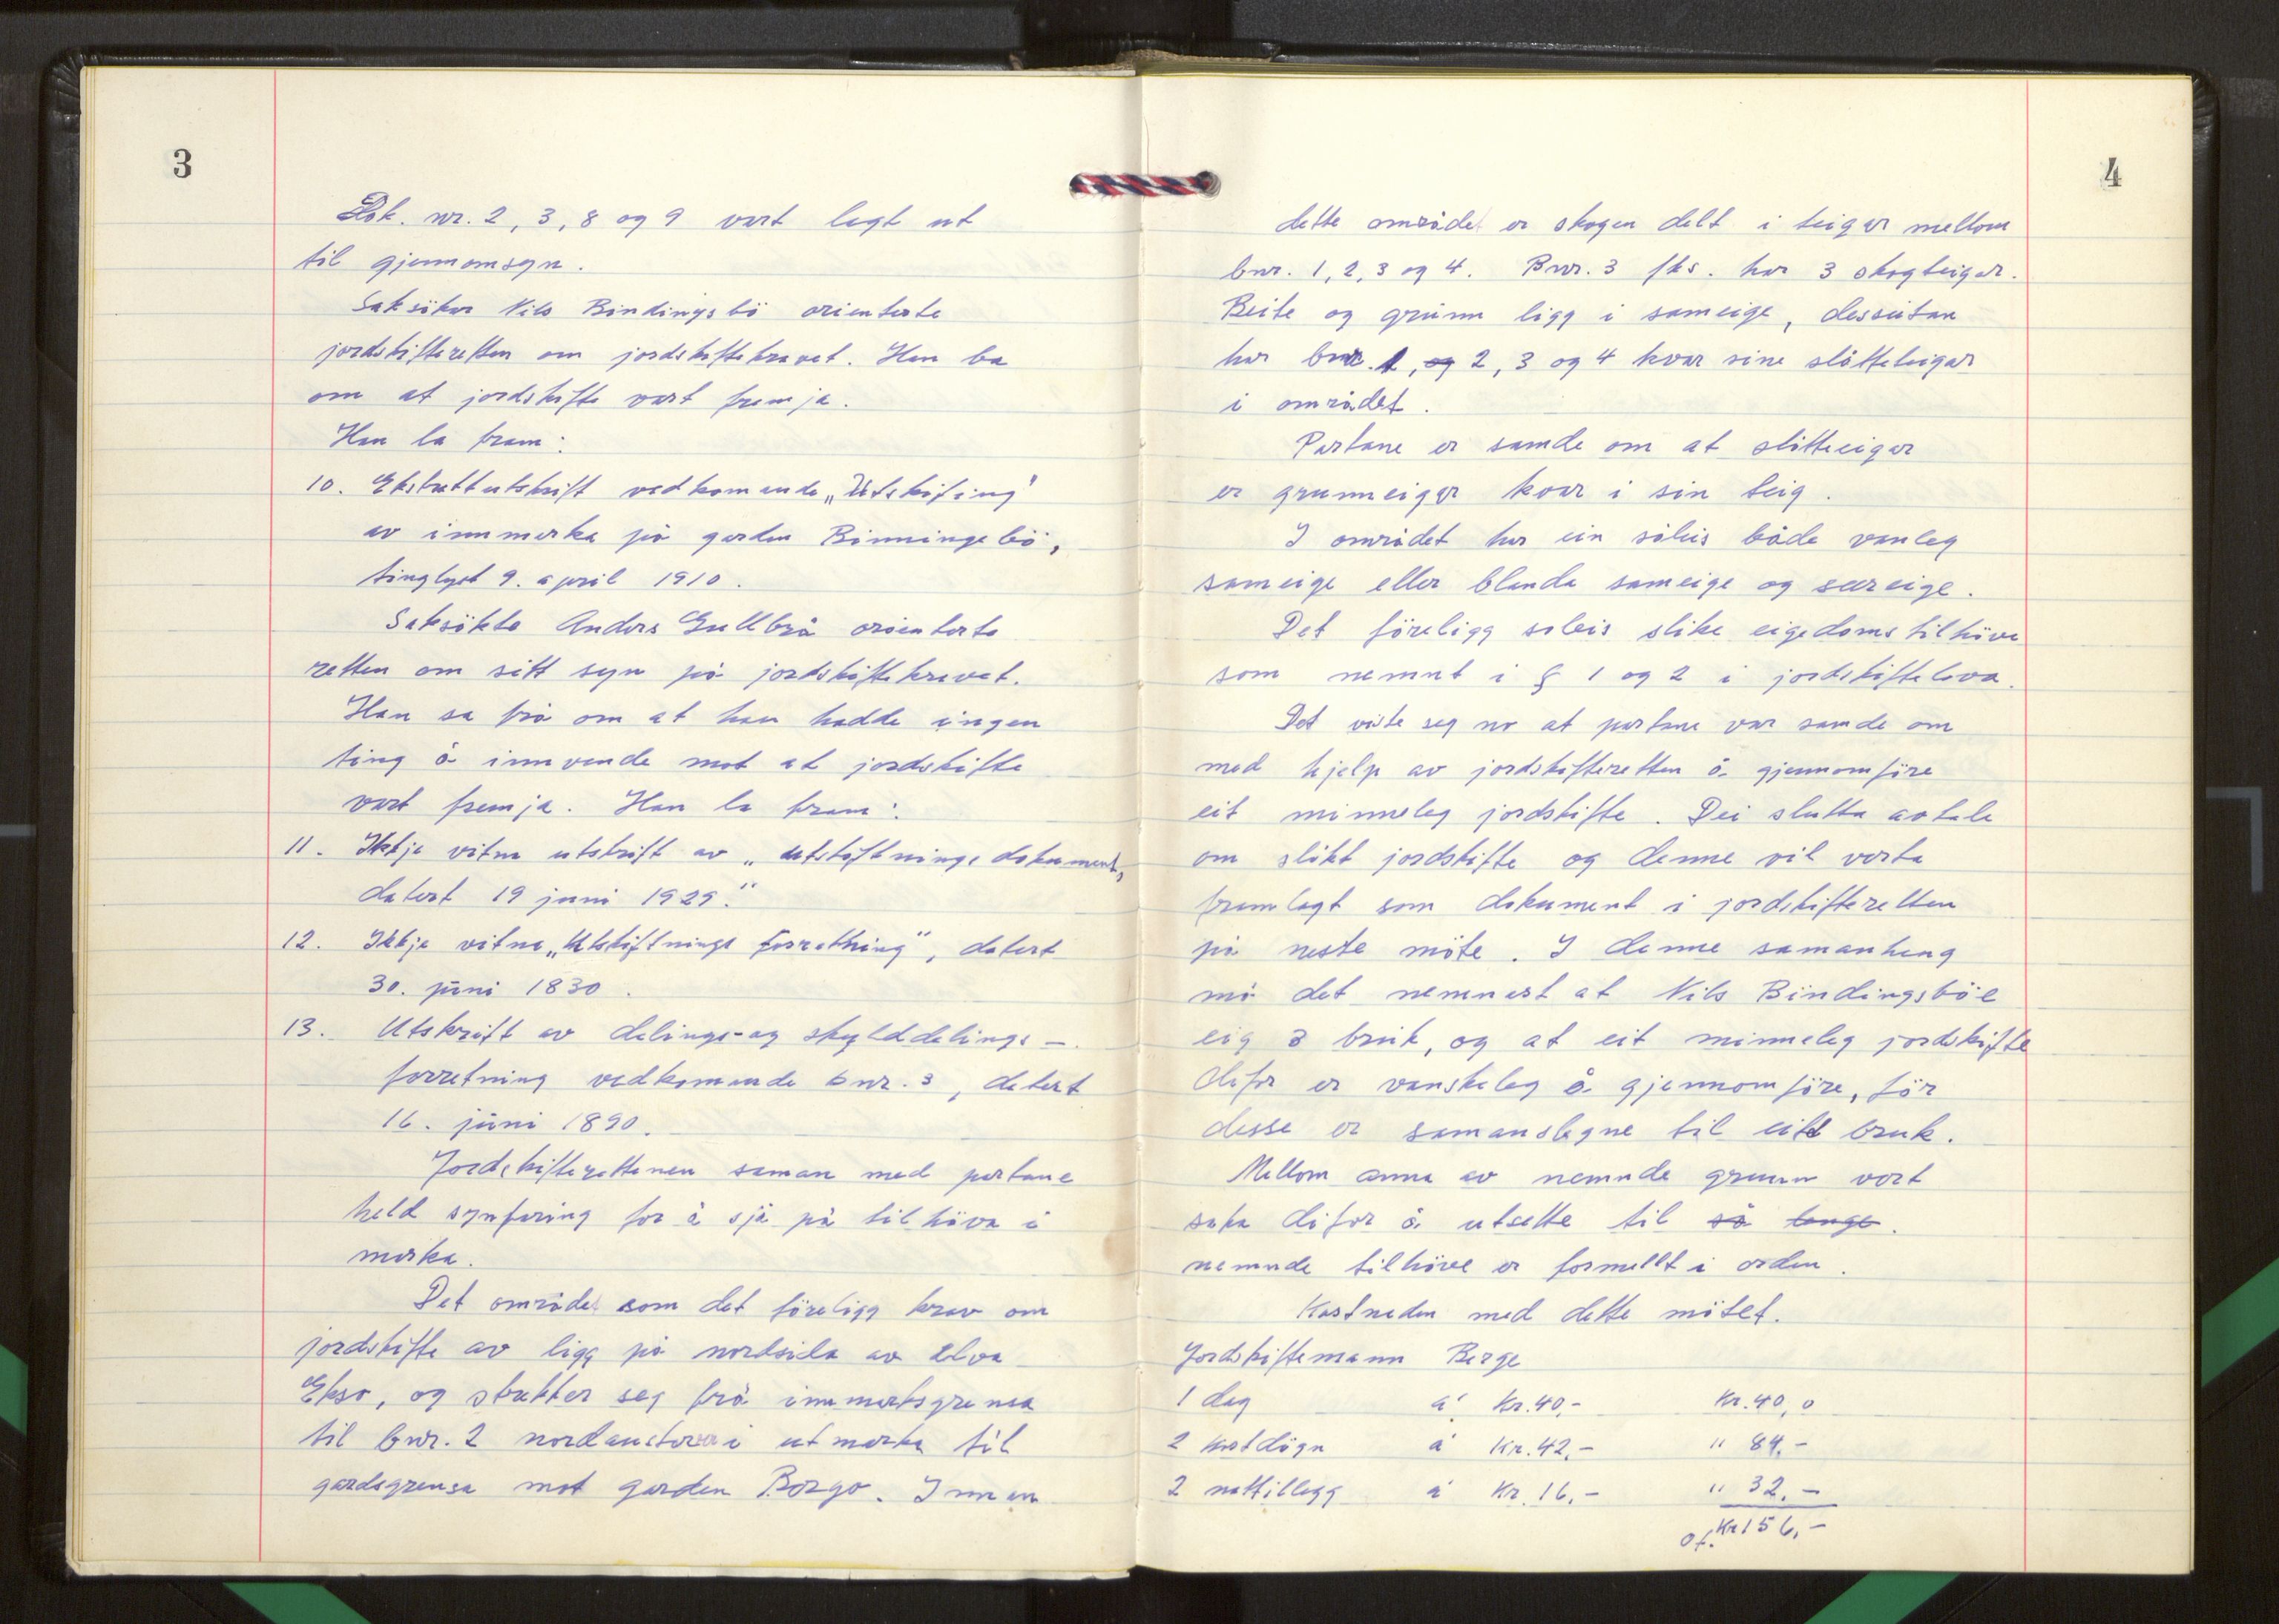 3
Dok. nr. 2, 3, 8 og 9 vart lagt ut
til gjennomsyn.
Saksökar Nils Bindingsbö orienterte
jordskifteretten om jordskiftekravet. Han ba
om at jordskifte vart fremja.
Han la fram:
10. Ekstraktutskrift vedkomande „Utskifing"
av innmarka på garden Binningebö,
tinglyst 9. april 1910.
Saksökte Anders Gullbrå orienterte
retten om sitt syn på jordskiftekravet.
Han sa frå om at han hadde ingen
ting å innvende mot at jordskifte
vart fremja. Han la fram:
11. Ikkje vitna utskrift av „utskiftnings dokument,
datert 19 juni 1929."
12. Ikkje vitna „Utskiftnings forrethning", datert
30. juni 1830.
13. Utskrift av delings- og skylddelings-
forretning vedkomande bnr. 3, datert
16. juni 1890.
Jordskifterettenen saman med partane
held synfaring for å sjå på tilhöva i
marka.
Det område som det föreligg krav om
jordskifte av ligg på nordsida av elva
Ekso, og strekker seg frå innmarksgrensa
til bnr. 2 nordaustover i utmarka til
gardsgrensa mot garden Borgo. Innan
4
dette området er skogen delt i teigar mellom
bnr. 1, 2, 3 og 4. Bnr. 3 fks. har 3 skogteigar.
Beite og grunn ligg i sameige, dessutan
har bnr. 1, og 2, 3 og 4 kvar sine slåtteteigar
i området.
Partane er samde om at slåtteeigar
er grunneigar kvar i sin teig.
I området har ein såleis både vanleg
sameige eller blanda sameige og særeige.
Det föreligg soleis slike eigedomstilhöve
som nemnt i § 1 og 2 i jordskiftelova.
Det viste seg no at partane var samde om
med hjelp av jordskifteretten å gjennomföre
eit minneleg jordskifte. Dei slutta avtale
om slikt jordskifte og denne vil verta
framlagt som dokument i jordskifteretten
på neste möte. I denne samanheng
må det nemnast at Nils Bindingsböe
eig 3 bruk, og at eit minneleg jordskifte
difor er vanskeleg å gjennomföre, för
desse er samanslegne til eitt bruk.
Mellom anna av nemnde grunn vart
saka difor å utsette til så lenge.
nemnde tilhöve er formellt i orden.
Kostnaden med dette mötet.
Jordskiftemann Berge
1 dag á Kr. 40,- Kr. 40,0
2 kostdögn á Kr. 42,- " 84,-
2 nattillegg á Kr. 16,- " 32,-
Of. Kr 156,-